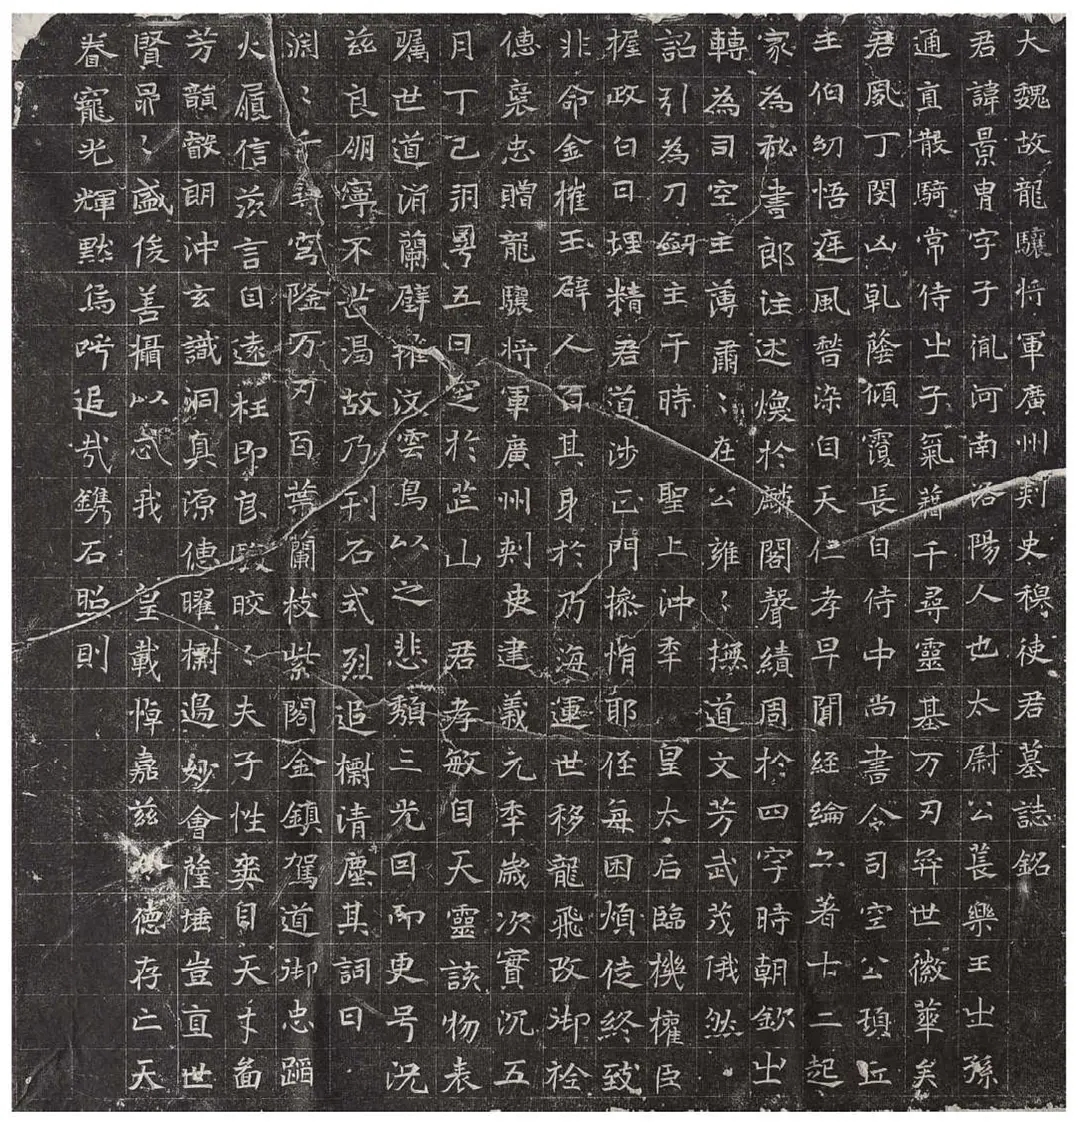 大魏故龍驤将軍廣州刾史穆使君墓誌銘
君諱景胄字子胤河南洛陽人也太尉公萇樂王㞢孫
通直散騎常侍㞢子氣藉千尋靈基万刃弈世徽華矣
君夙丁閔凶乹蔭傾覆長自侍中尚書令司空公頊丘
王伯幼悟庭風暜染自天仁孝早聞經綸尒著十二起
家為秘書郎注述煥於麟閣聲績周於四㝉時朝欽㞢
轉為司空主薄肅〻在公雍〻撫道文芳武茂俄然
詔引為刀劒主于時聖上沖秊皇太后臨機權臣
握政白日埋精君道涉正門捴悁耶侄每困煩使終致
非命金摧玉碎人百其身於乃海運世移龍飛改御袷
德襃忠贈龍驤将軍廣州刾史建義元秊歲次實沉五
月丁巳朔粵五日窆於芒山君孝敏自天靈該物表
矚世道消蘭摧汶雲鳥以之悲頽三光回而更号況
兹良朋寧不苦渴故乃刊石式烈追櫛清塵其詞曰
淵〻千尋穹隆万刃百葉蘭枝紫閣金鎮駕道御忠蹈
火履信茨言自遠枉即良皎〻夫子性奕自天才
芳韻叡朗沖玄識洞真源德曜櫛邊妙會薩埵豈直世
賢昂〻盛俊善攝以忒我皇載悼嘉兹德存亡天
眷寵光輝黙烏呼追㢤鐫石照則